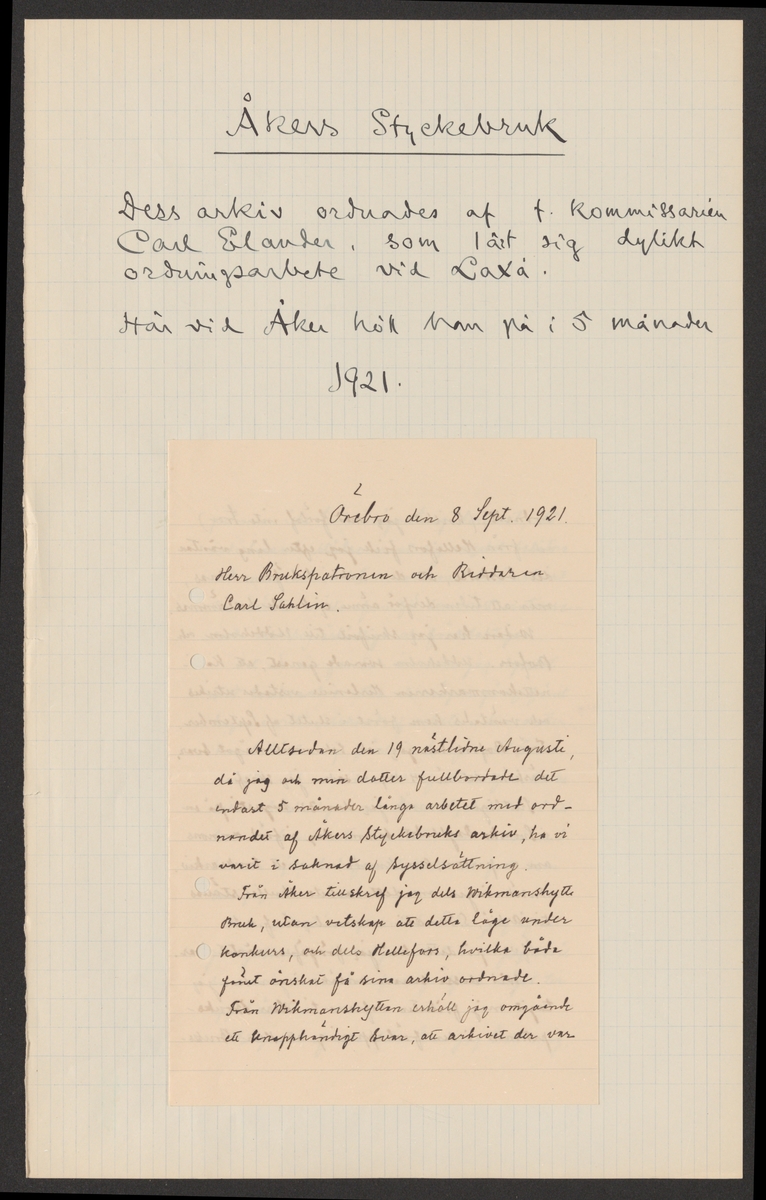 Åkers Styckebruk
Dess arkiv ordnades af f. kommissarien
Carl Elander, som lärt sig dylikt
ordningsarbete vid Laxå.
Här vid Åker höll han på i 5 månader
1921.
Örebro den 8 Sept. 1921.
Herr Brukspatronen och Riddaren
Carl Sahlin.
Alltsedan den 19 nästlidne Augusti,
då jag och min dotter fullbordade det
endast 5 månader långa arbetet med ord-
nandet af Åkers Styckebruks arkiv, ha vi
varit i saknad af sysselsättning.
Från Åker tillskref jag dels Wikmanshytte
Bruk, utan vetskap att detta låge under
konkurs, och dels Hellefors, hvilka båda
förut önskat få sina arkiv ordnade.
Från Wikmanshyttan erhöll jag omgående
ett knapphändigt svar, att arkivet der var